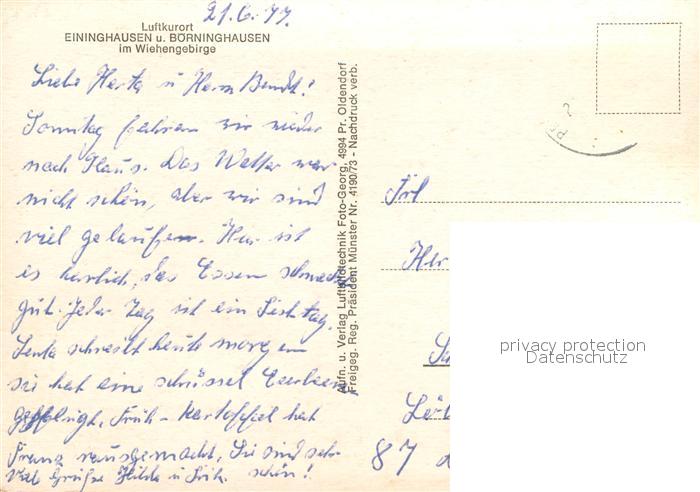 21.6.77.
Luftkurort
EININGHAUSEN u. BÖRNINGHAUSEN
im Wiehengebirge
Liebe Herta u Herrn Bendt!
Sonntag fahren wir wieder
nach Haus. Das Wetter war
nicht schön, aber wir sind
viel gelaufen. Hier ist
es herrlich, das Essen schmeckt
gut. Jeder Tag ist ein Festtag.
Senta schreibt heute morgen
sie hat eine schüssel Eerbeeren
gepflügt, Früh-kartoffel hat
Franz rausgemacht, Sie sind sehr
Viele Grüße Hilda u Fritz. schön!
Aufn. u. Verlag Luftbildtechnik Foto-Georg, 4994 Pr. Oldendorf
Freigeg. Reg. Präsident Münster Nr. 4190/73 - Nachdruck verb.
Frl
Her
87
privacy protection
Datenschutz